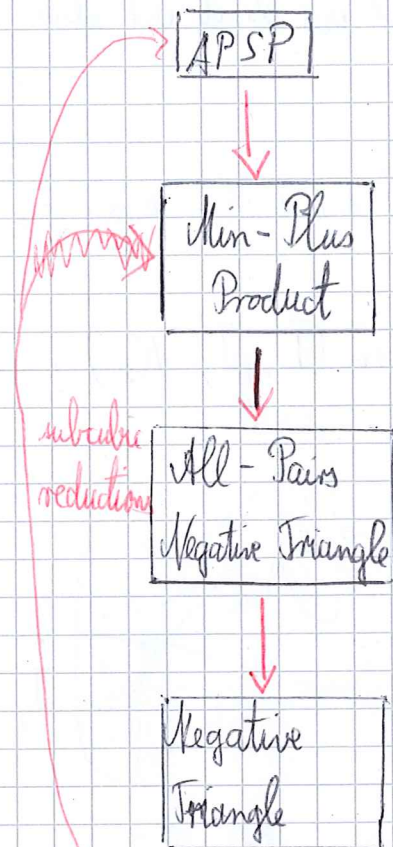 APSP
Min-Plus
Product
subcubic
reductions
All-Pairs
Negative Triangle
Negative
Triangle